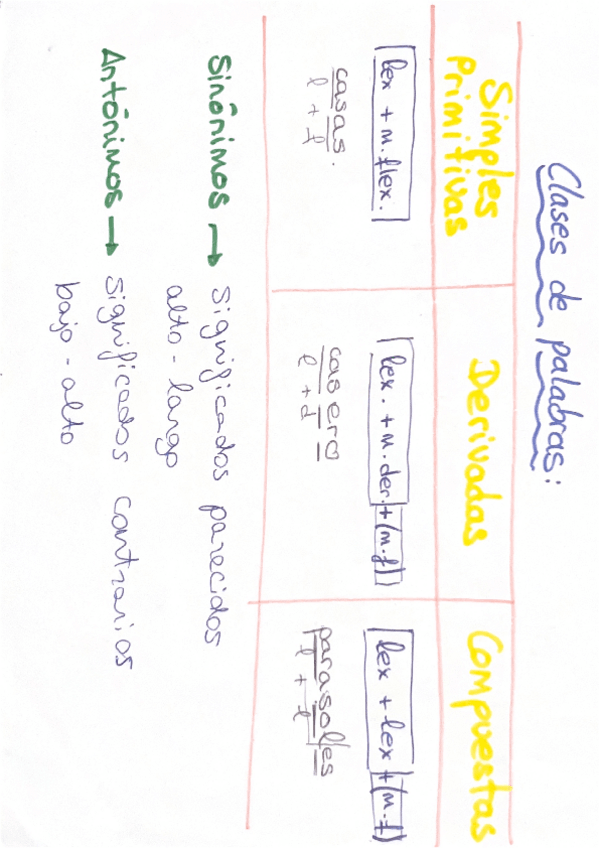 Clases de palabras:
Simples Primitivas
lex + m. flex.
casas.
l + f
Derivadas
lex. + m. der. + (m. f)
casero
l + d
Compuestas
lex + lex + (m. f)
parasoles
l + l
Sinónimos → Significados parecidos
alto - largo
Antónimos → Significados contrarios
bajo - alto